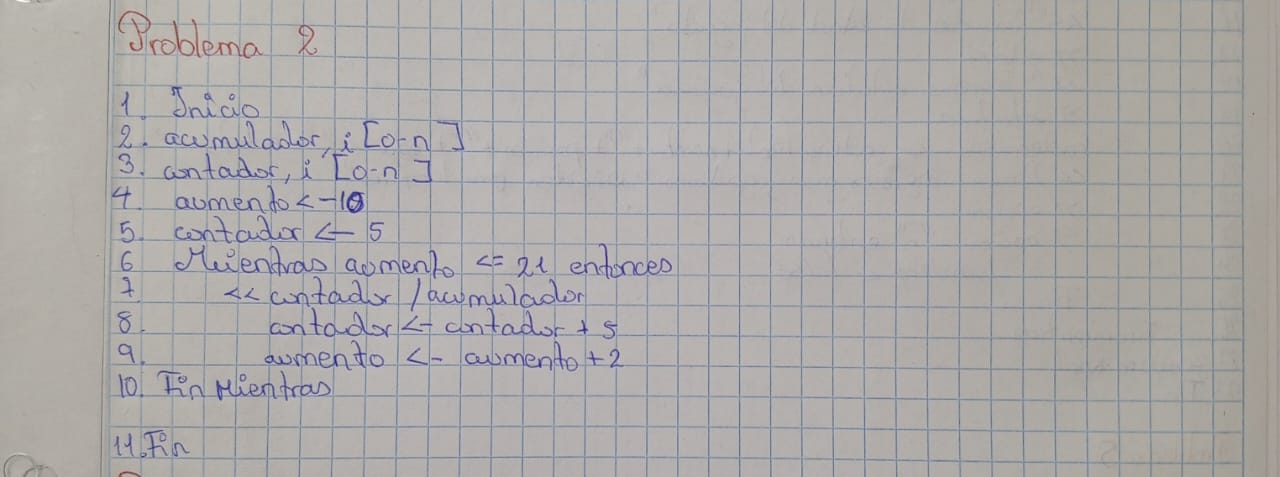 Problema 2
1. Inicio
2. acumulador, i [0-n]
3. contador, i [0-n]
4. aumento <-10
5. contador <- 5
6 Mientras aumento <= 21 entonces
7. << contador / acumulador
8. contador <- contador + 5
9. aumento <- aumento + 2
10. Fin Mientras
11. Fin